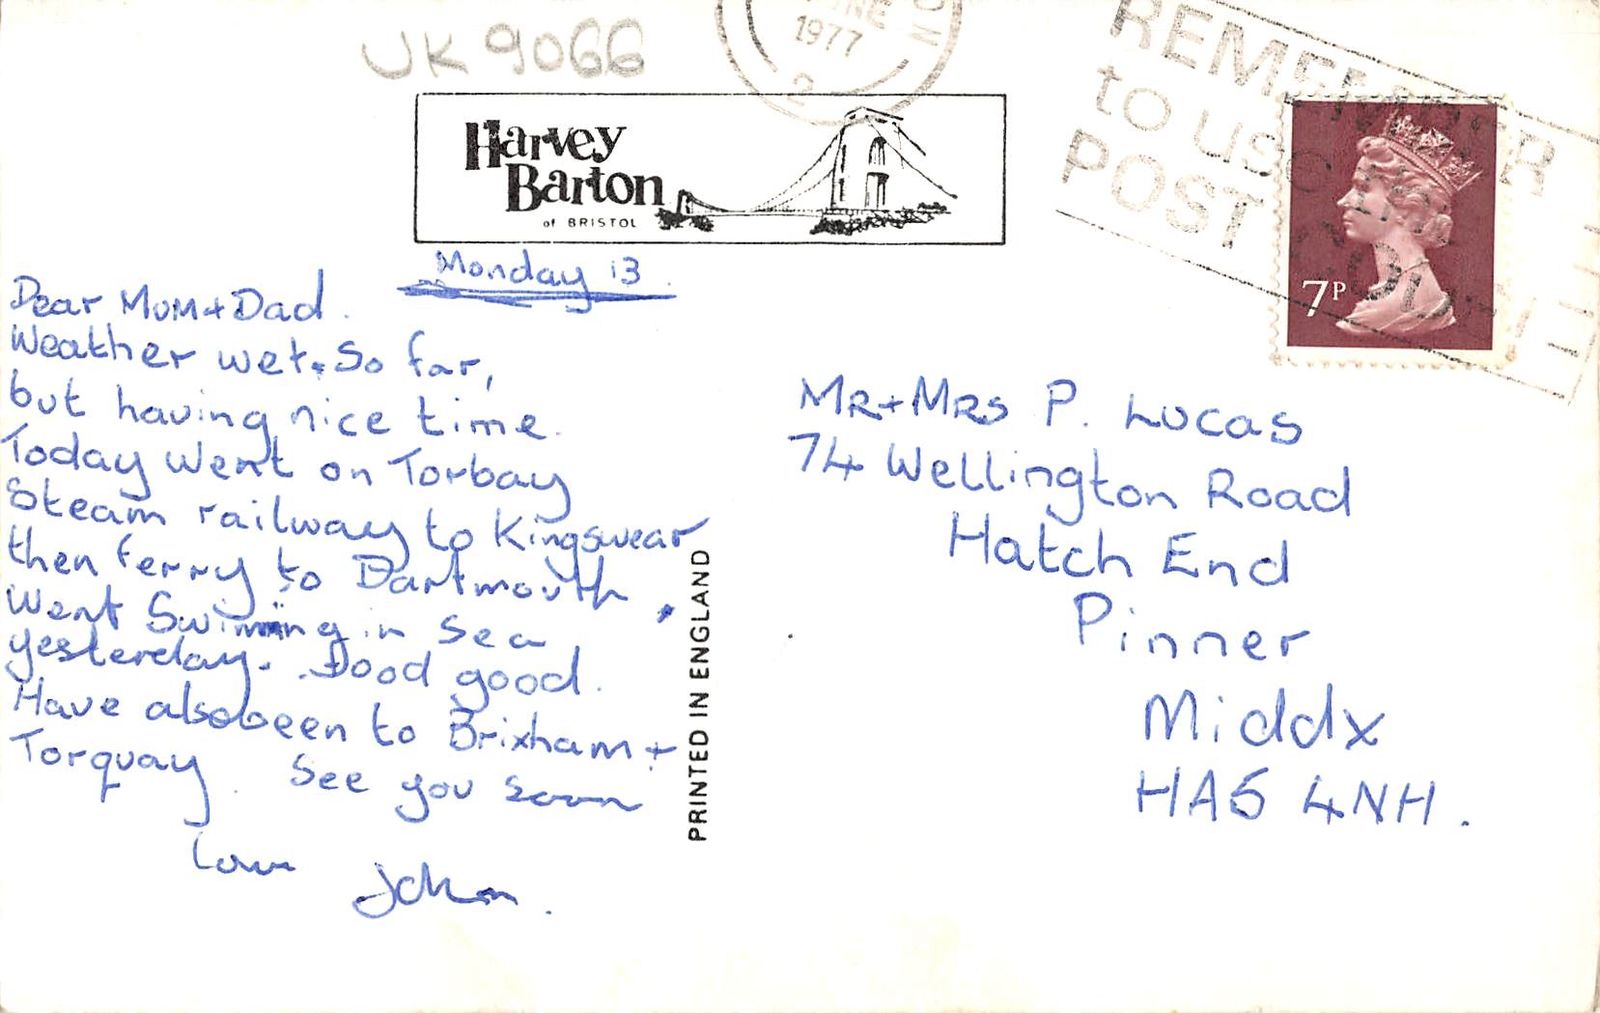 UK 9066
JUNE
1977
2
REMEMBER
to use
POST
Harvey
Barton
of BRISTOL
7P
Monday 13.
Dear Mum + Dad.
Weather wet. So far,
but having nice time.
Today went on Torbay
Steam railway to Kingswear
then ferry to Dartmouth.
Went Swimming in Sea
yesterday. Dood good.
Have also been to Brixham +
Torquay. See you soon
Love
John.
PRINTED IN ENGLAND
MR + MRS P. LUCAS
74 Wellington Road
Hatch End
Pinner
Middx
HA5 4NH.